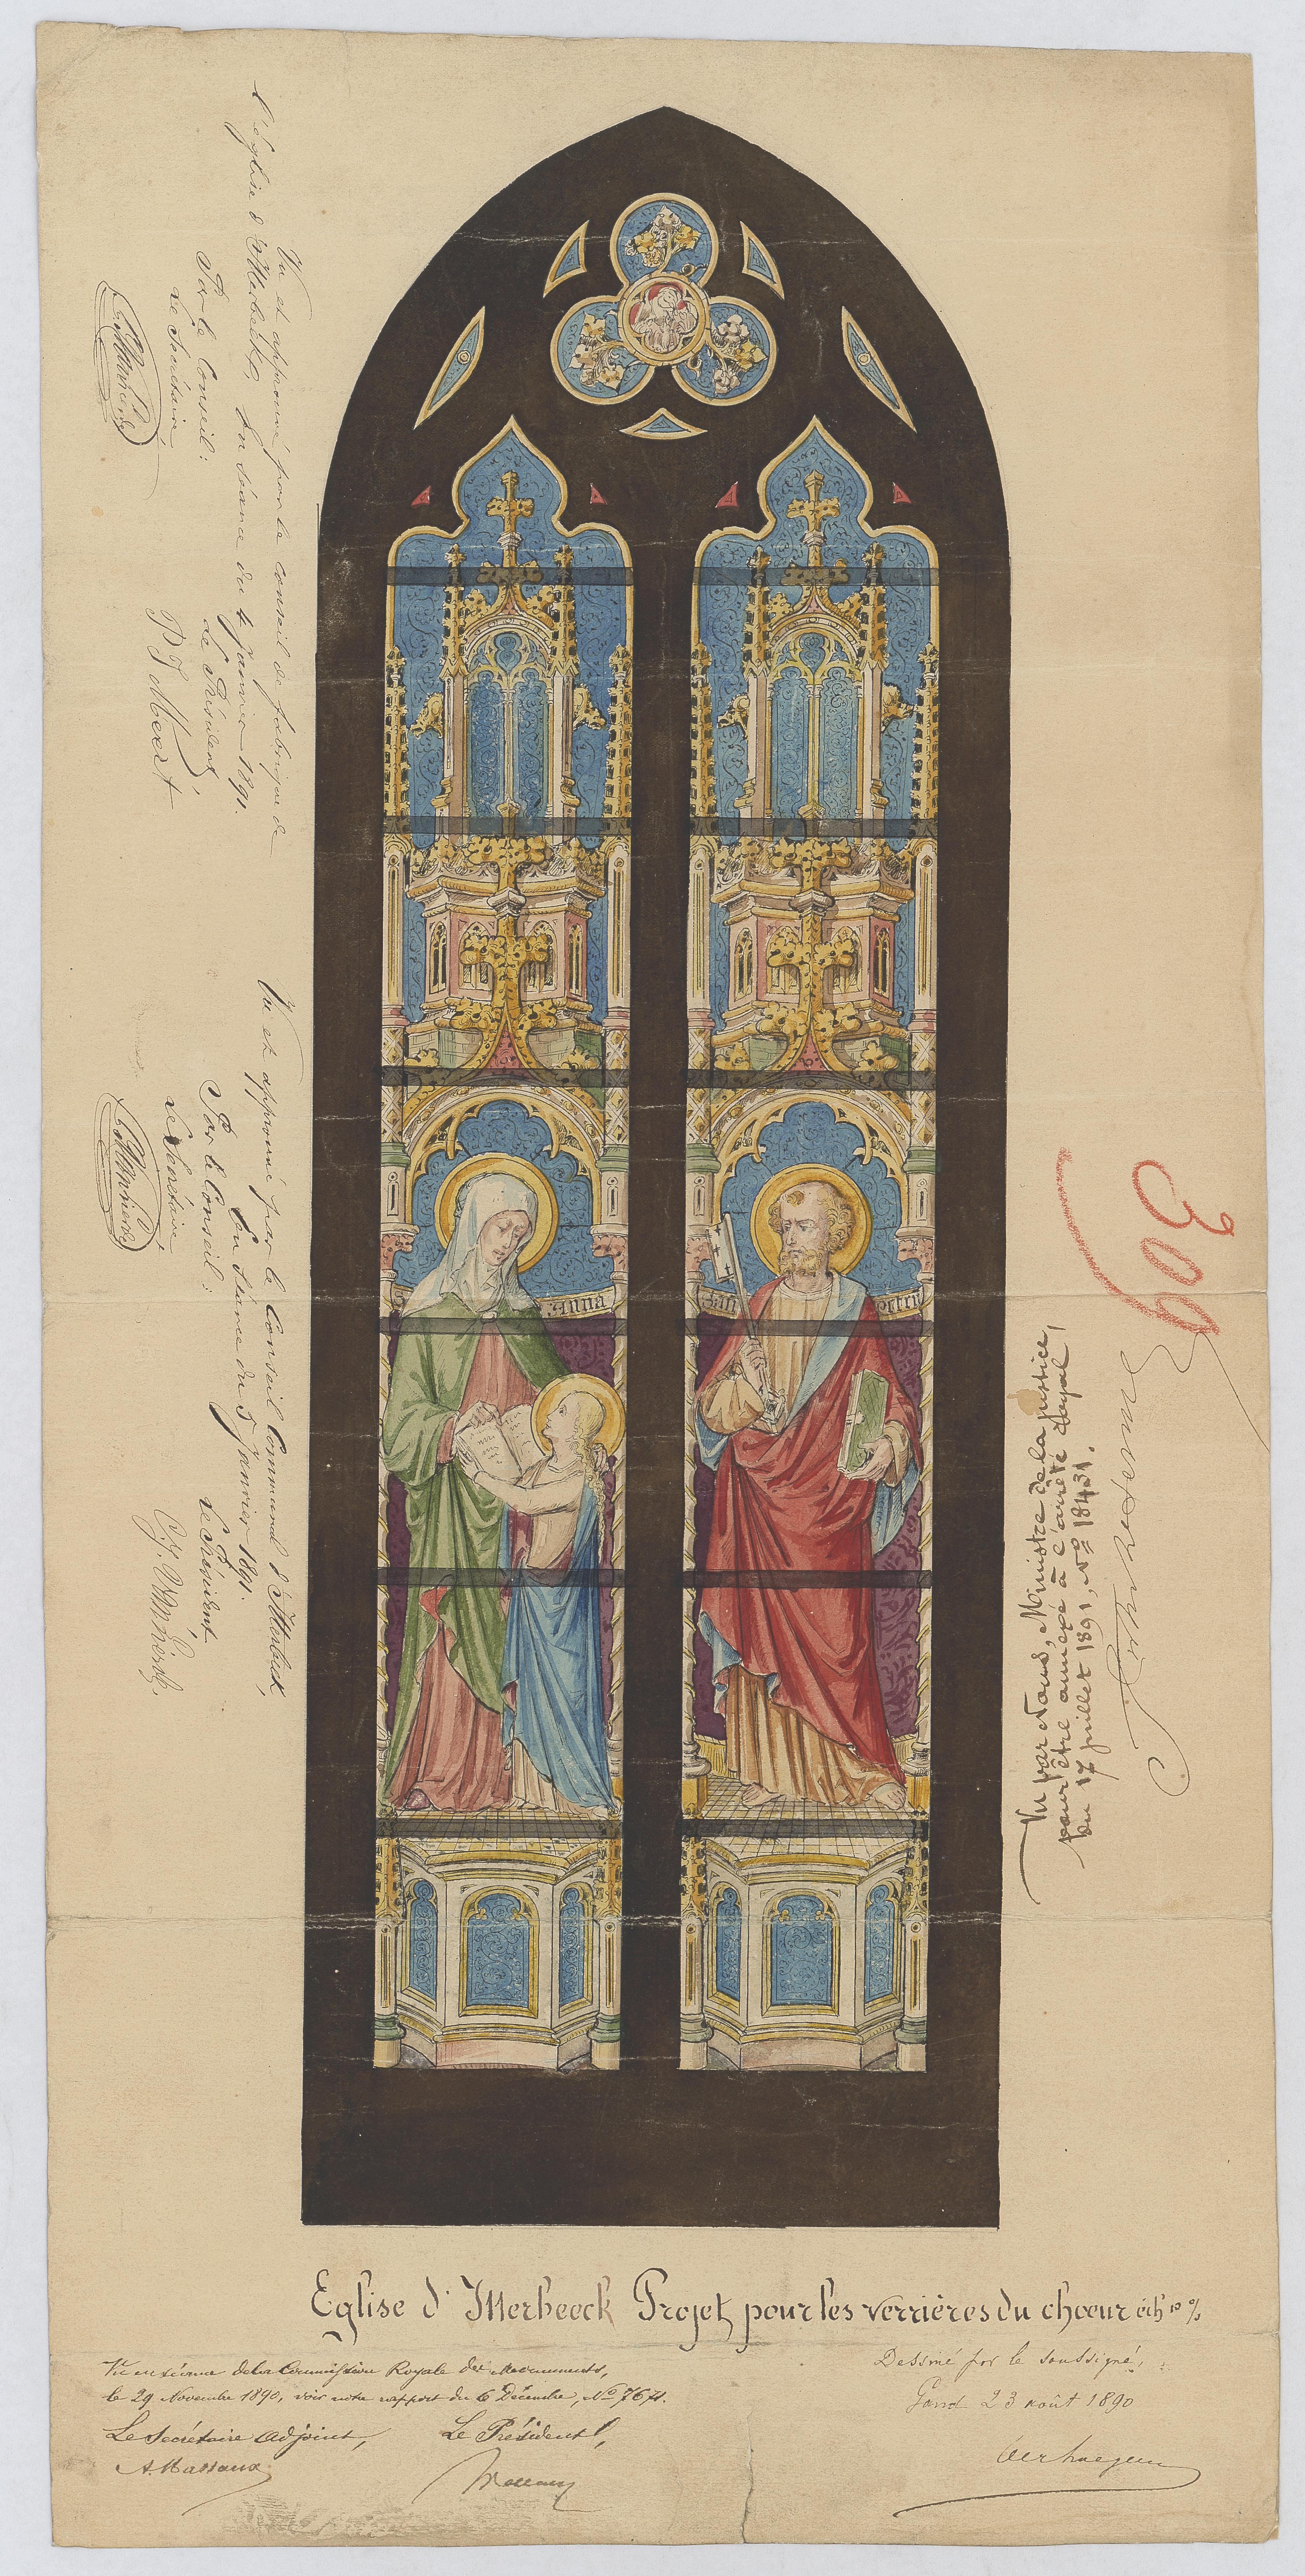 Vu et approuvé par le conseil de fabrique de
l'église d'Itterbeek, en séance du 4 janvier 1891.
Par le Conseil:
Le Secrétaire,
Le Président,
P J Meert
Vu et approuvé par le Conseil Communal d'Itterbeek,
en séance du 5 Janvier 1891.
Par le Conseil:
Le Secrétaire,
Le Président
anna
san
petru
309
Vu par Nous, Ministre de la Justice,
pour être annexé à l'arrêté Royal
du 17 juillet 1891, No 18431.
Eglise d'Itterbeeck Projet pour les verrières du chœur éch 10 %
Vu en séance de la Commission Royale des Monuments,
le 29 Novembre 1890, voir notre rapport du 6 Décembre, No 7674.
Le Secrétaire adjoint,
Le Président,
A. Massaux
Dessiné par le soussigné,
Gand 23 août 1890
Verhaegen